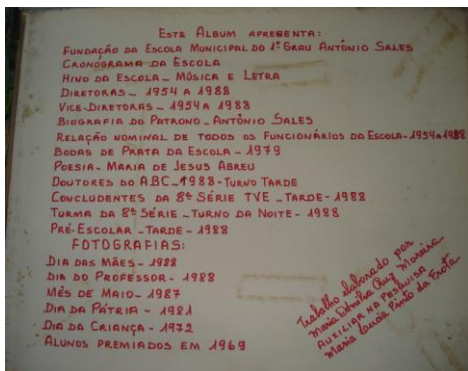 ESTE ÁLBUM APRESENTA:
FUNDAÇÃO DA ESCOLA MUNICIPAL DO 1º GRAU ANTÔNIO SALES
CRONOGRAMA DA ESCOLA
HINO DA ESCOLA - MÚSICA E LETRA
DIRETORAS - 1954 A 1988
VICE-DIRETORAS - 1954 A 1988
BIOGRAFIA DO PATRONO - ANTÔNIO SALES
RELAÇÃO NOMINAL DE TODOS OS FUNCIONÁRIOS DA ESCOLA - 1954 A 1988
BODAS DE PRATA DA ESCOLA - 1979
POESIA - MARIA DE JESUS ABREU
DOUTORES DO ABC - 1988 - TURNO TARDE
CONCLUDENTES DA 8ª SÉRIE TVE - TARDE - 1988
TURMA DA 8ª SÉRIE - TURNO DA NOITE - 1988
PRÉ-ESCOLAR - TARDE - 1988
FOTOGRAFIAS:
DIA DAS MÃES - 1988
DIA DO PROFESSOR - 1988
MÊS DE MAIO - 1987
DIA DA PÁTRIA - 1981
DIA DA CRIANÇA - 1972
ALUNOS PREMIADOS EM 1969
Trabalho elaborado por
Maria Cruz Moreira
AUXILIAR NA PESQUISA
Maria Laucia Pinto da Frota